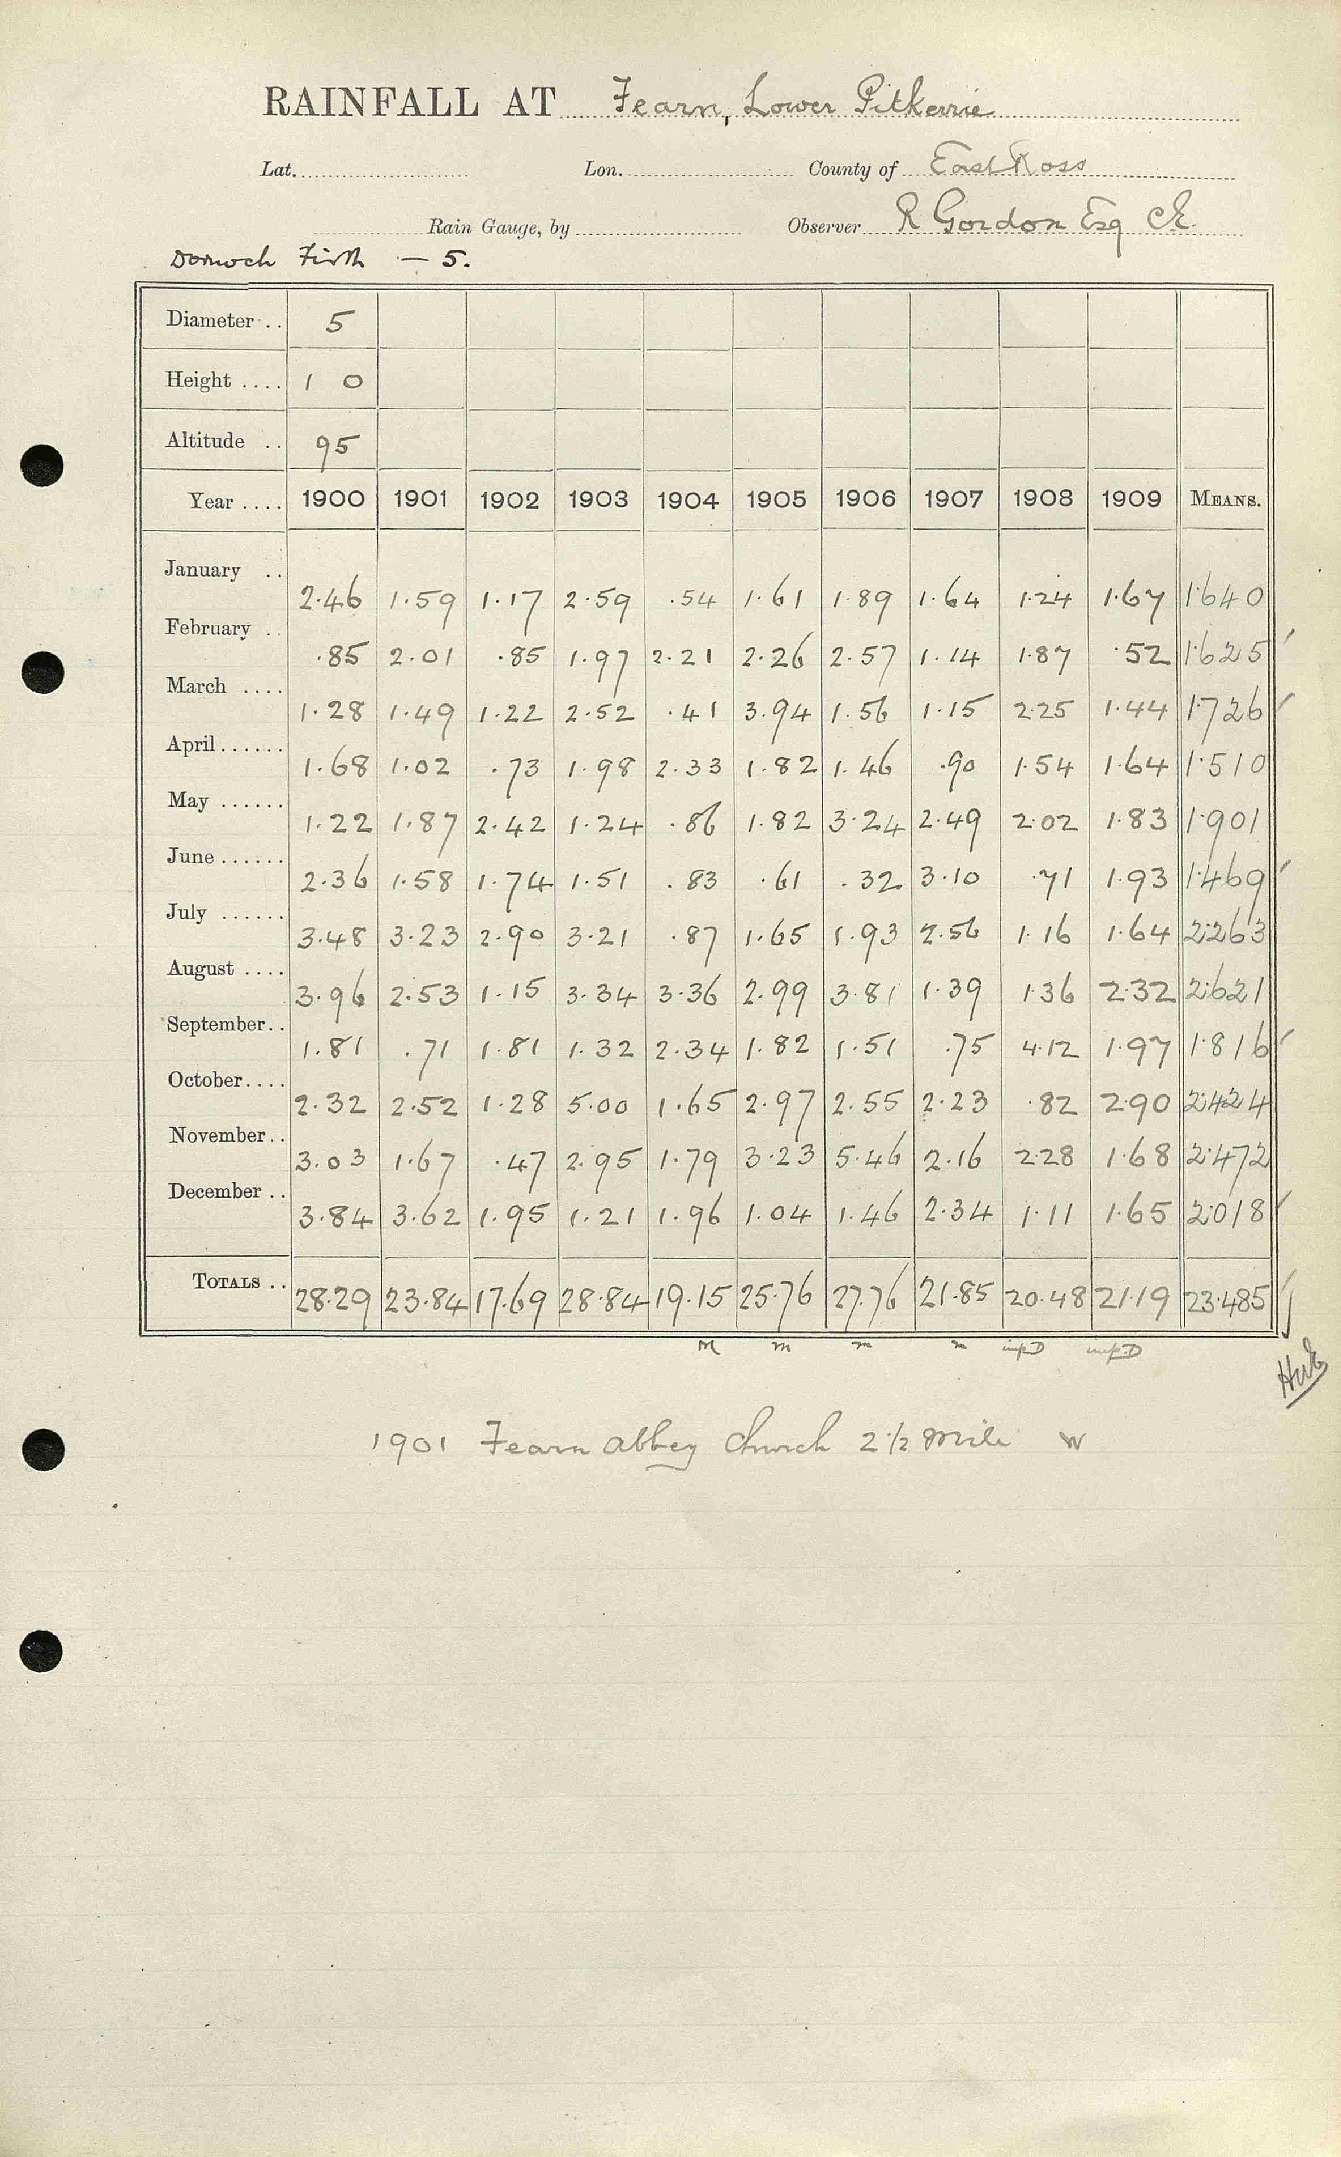 RAINFALL AT Fearn, Lower Pitkerrie
Lat. Lon. County of East Ross
Rain Gauge, by Observer R Gordon Esq CE
Dornoch Firth - 5.
Diameter .. 5
Height .... 1 0
Altitude .. 95
Year .... 1900 1901 1902 1903 1904 1905 1906 1907 1908 1909 MEANS.
January .. 2.46 1.59 1.17 2.59 .54 1.61 1.89 1.64 1.24 1.67 1.640
February .. .85 2.01 .85 1.97 2.21 2.26 2.57 1.14 1.87 .52 1.625
March .... 1.28 1.49 1.22 2.52 .41 3.94 1.56 1.15 2.25 1.44 1.726
April...... 1.68 1.02 .73 1.98 2.33 1.82 1.46 .90 1.54 1.64 1.510
May ...... 1.22 1.87 2.42 1.24 .86 1.82 3.24 2.49 2.02 1.83 1.901
June ...... 2.36 1.58 1.74 1.51 .83 .61 .32 3.10 .71 1.93 1.469
July ...... 3.48 3.23 2.90 3.21 .87 1.65 1.93 2.56 1.16 1.64 2.263
August .... 3.96 2.53 1.15 3.34 3.36 2.99 3.81 1.39 1.36 2.32 2.621
September.. 1.81 .71 1.81 1.32 2.34 1.82 1.51 .75 4.12 1.97 1.816
October.... 2.32 2.52 1.28 5.00 1.65 2.97 2.55 2.23 .82 2.90 2.424
November.. 3.03 1.67 .47 2.95 1.79 3.23 5.46 2.16 2.28 1.68 2.472
December .. 3.84 3.62 1.95 1.21 1.96 1.04 1.46 2.34 1.11 1.65 2.018
TOTALS .. 28.29 23.84 17.69 28.84 19.15 25.76 27.76 21.85 20.48 21.19 23.485
M m m m imp.D imp.D
1901 Fearn Abbey Church 2 1/2 mile W